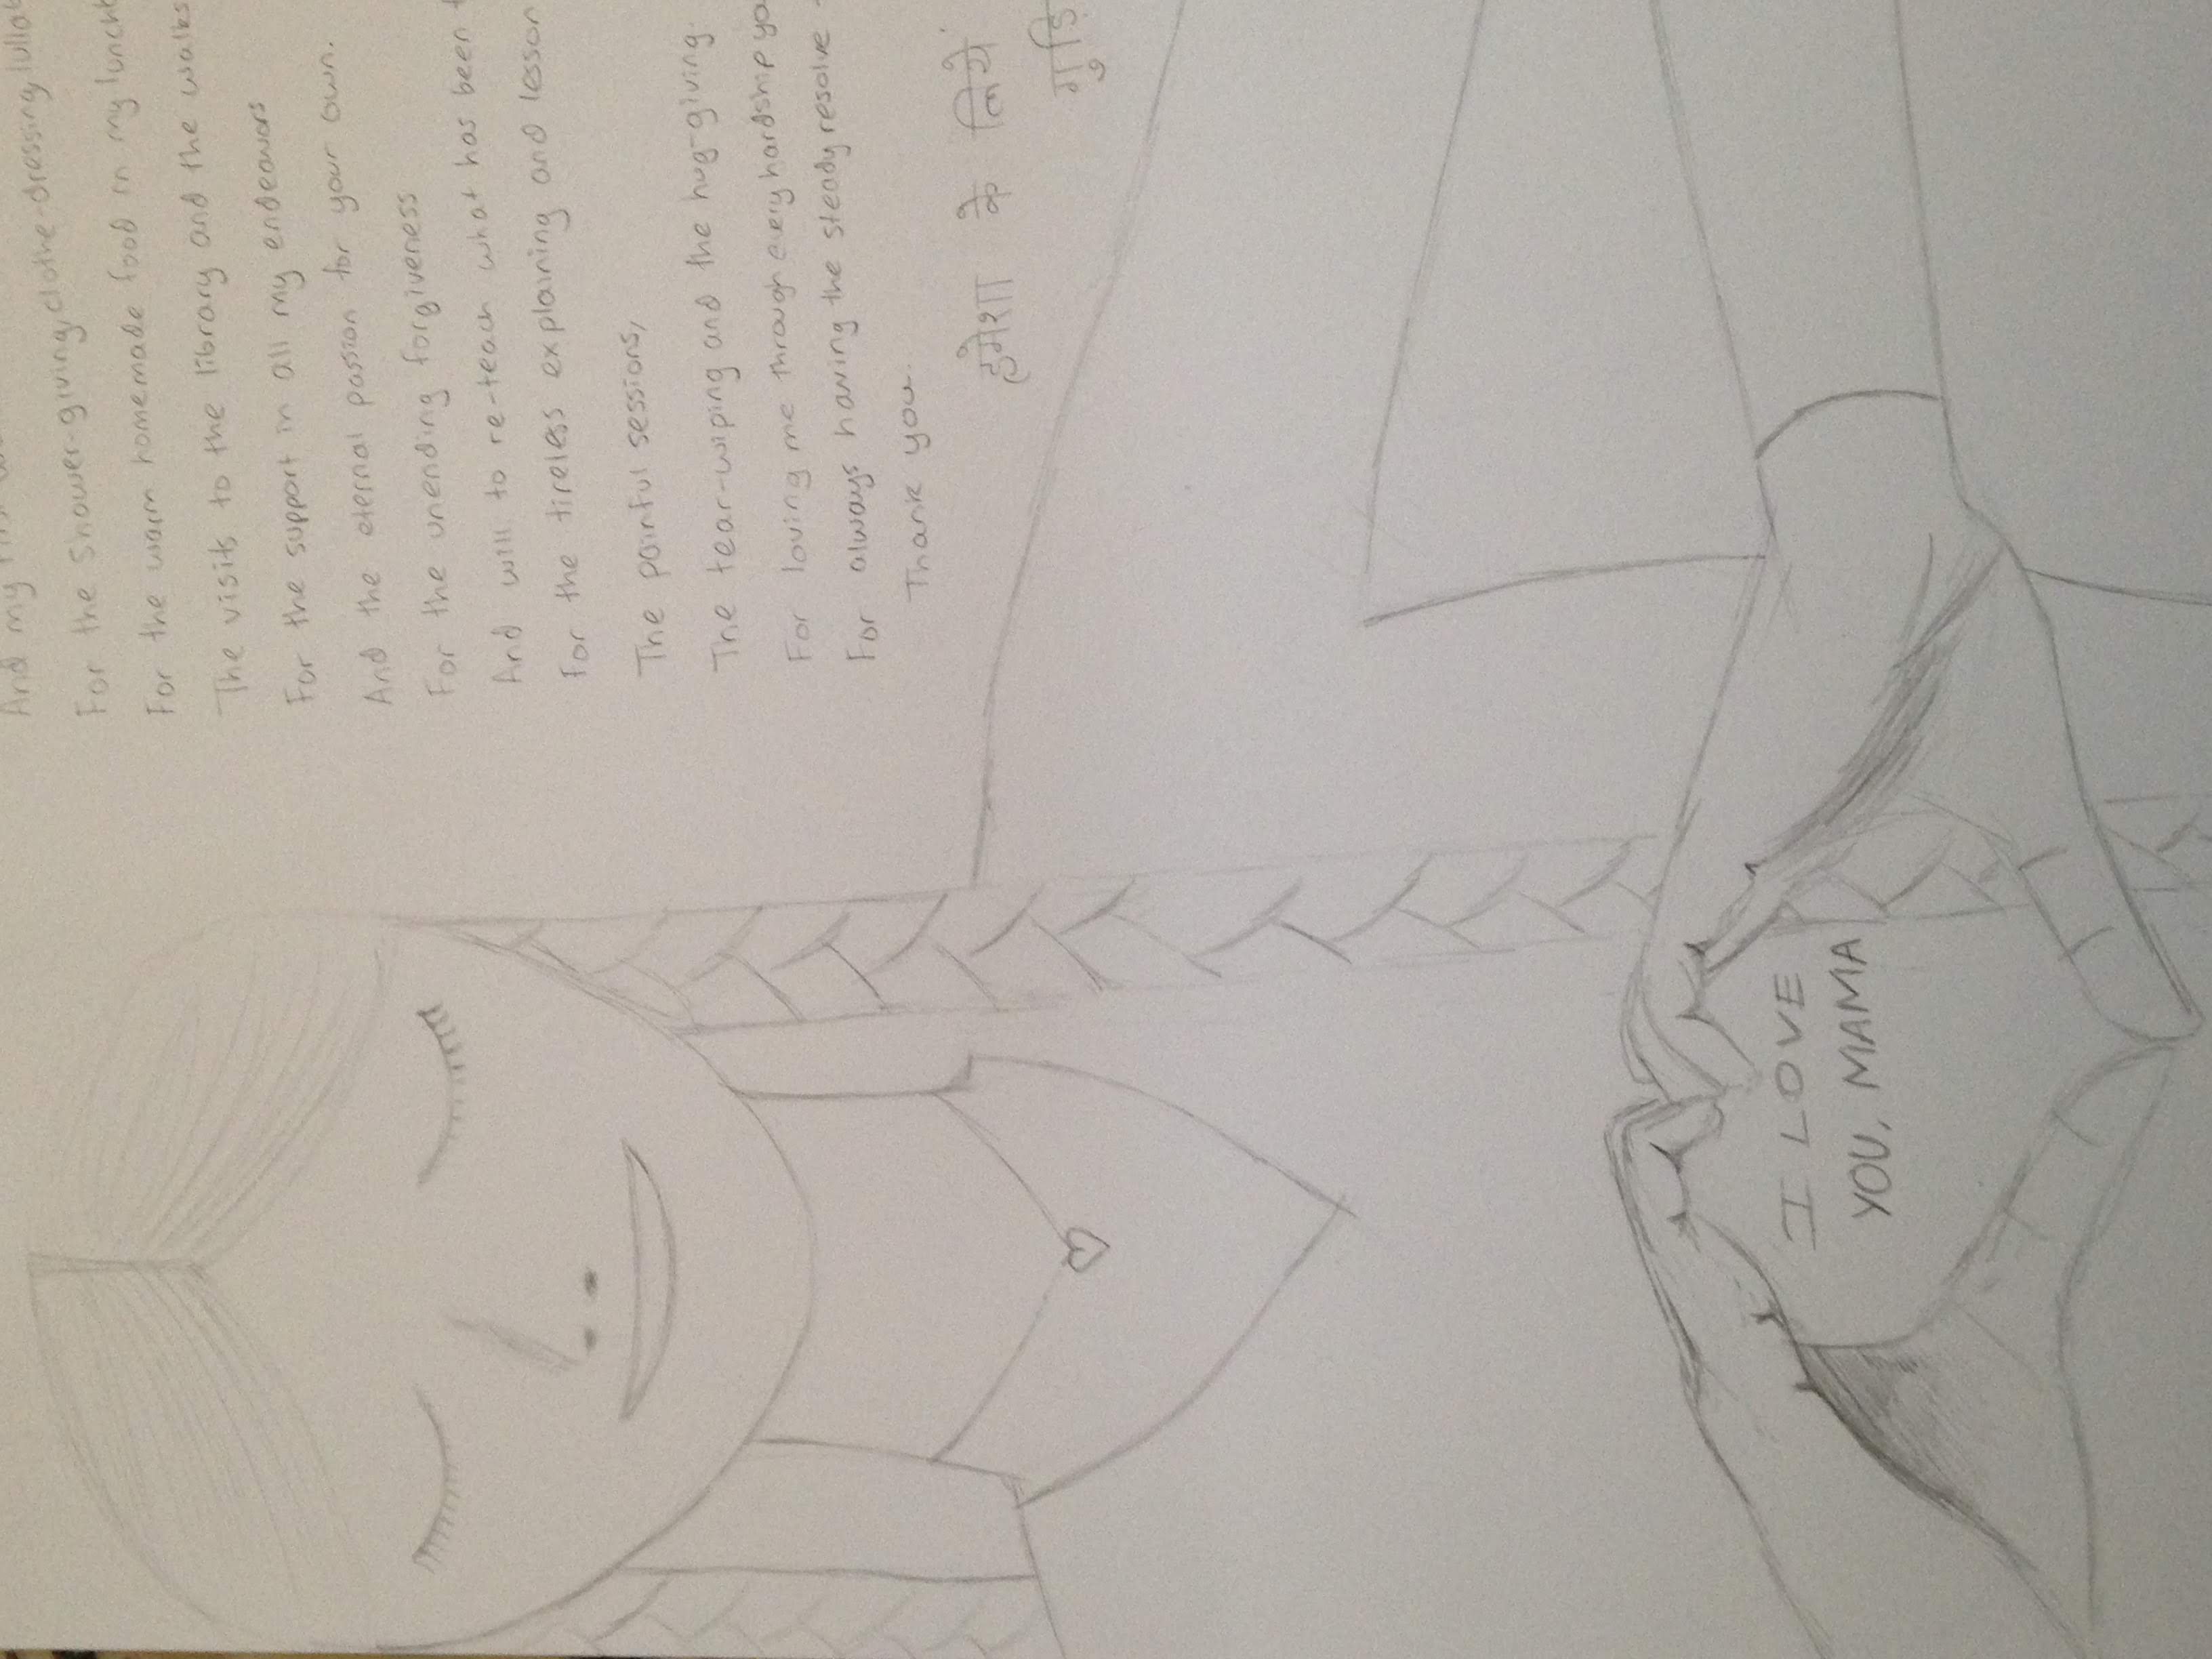 And my
For the shower-giving, clothe-dressing, lullab
For the warm homemade food in my luncht
The visits to the library and the walks
For the support in all my endeavors
And the eternal passion for your own.
For the unending forgiveness
And will to re-teach what has been
For the tireless explaining and lesson
The painful sessions,
The tear-wiping and the hug-giving.
For loving me through every hardship yo
For always having the steady resolve
Thank you.
हमेशा के लिये
गुड़ि
I LOVE
YOU, MAMA